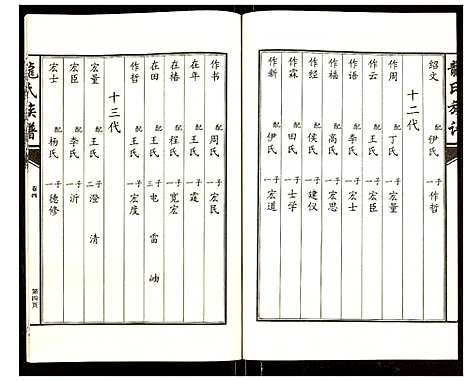 龍氏族譜
绍文 配 伊氏 子一 作哲
十二代
作周 配 丁氏 子一 宏量
作云 配 王氏 子一 宏臣
作语 配 李氏 子一 宏士
作福 配 高氏 子一 宏思
作经 配 侯氏 子一 建仪
作霖 配 田氏 子一 士学
作新 配 伊氏 子一 宏道
作书 配 周氏 子一 宏民
在年 配 王氏 子一 霆
在椿 配 程氏 子一 宽宏
在田 配 王氏 子三 屯 雷 岫
作哲 配 王氏 子一 宏度
十三代
宏量 配 王氏 子二 澄 清
宏臣 配 李氏 子一 沂
宏士 配 杨氏 子一 德修
龍氏族譜
卷四
第四页